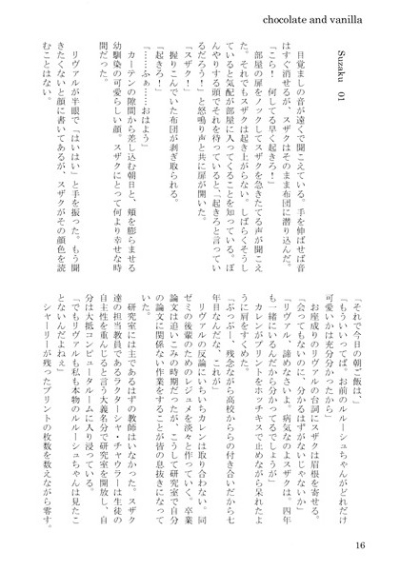 chocolate and vanilla
Suzaku　01
目覚ましの音が遠くで聞こえている。手を伸ばせば音
はすぐ消せるが、スザクはそのまま布団に潜り込んだ。
「こら！　何してる早く起きろ！」
部屋の扉をノックしてスザクを急きたてる声が聞こえ
た。それでもスザクは起き上がらない。しばらくそうし
ていると気配が部屋に入ってくることを知っている。ぼ
んやりする頭でそれを待っていると、「起きろと言ってい
るだろう！」と怒鳴り声と共に扉が開いた。
「スザク！」
握りこんでいた布団が剥ぎ取られる。
「……ふぁ……おはよう」
カーテンの隙間から差し込む朝日と、頬を膨らませる
幼馴染の可愛らしい顔。スザクにとって何より幸せな時
間だった。
リヴァルが半眼で「はいはい」と手を振った。もう聞
きたくないと顔に書いてあるが、スザクがその顔色を読
むことはない。
「それで今日の朝ご飯は、」
「もういいってば。お前のルルーシュちゃんがどれだけ
可愛いかは充分分かったから」
お座成りのリヴァルの台詞にスザクは眉根を寄せる。
「会ってもないのに、分かるはずがないじゃないか」
「リヴァル、諦めなさいよ。病気なのよスザクは。四年
も一緒にいるんだから分かってるでしょうが」
カレンがプリントをホッチキスで止めながら呆れたよ
うに肩をすくめた。
「ぶっぶー。残念ながら高校からの付き合いだから七
年目なんだな、これが」
リヴァルの反論にいちいちカレンは取り合わない。同
ゼミの後輩のためのレジュメを淡々と作っていく。卒業
論文は追いこみの時期だったが、こうして研究室で自分
の論文に関係ない作業をすることが皆の息抜きになって
いた。
研究室には主であるはずの教師はいなかった。スザク
達の担当教員であるラクターシャ・チャウラーは生徒の
自主性を重んじると言う大義名分で研究室を開放し、自
分は大抵コンピュータルームに入り浸っている。
「でもリヴァルも私も本物のルルーシュちゃんは見たこ
とないんだよねぇ」
シャーリーが残ったプリントの枚数を数えながら零す。
16